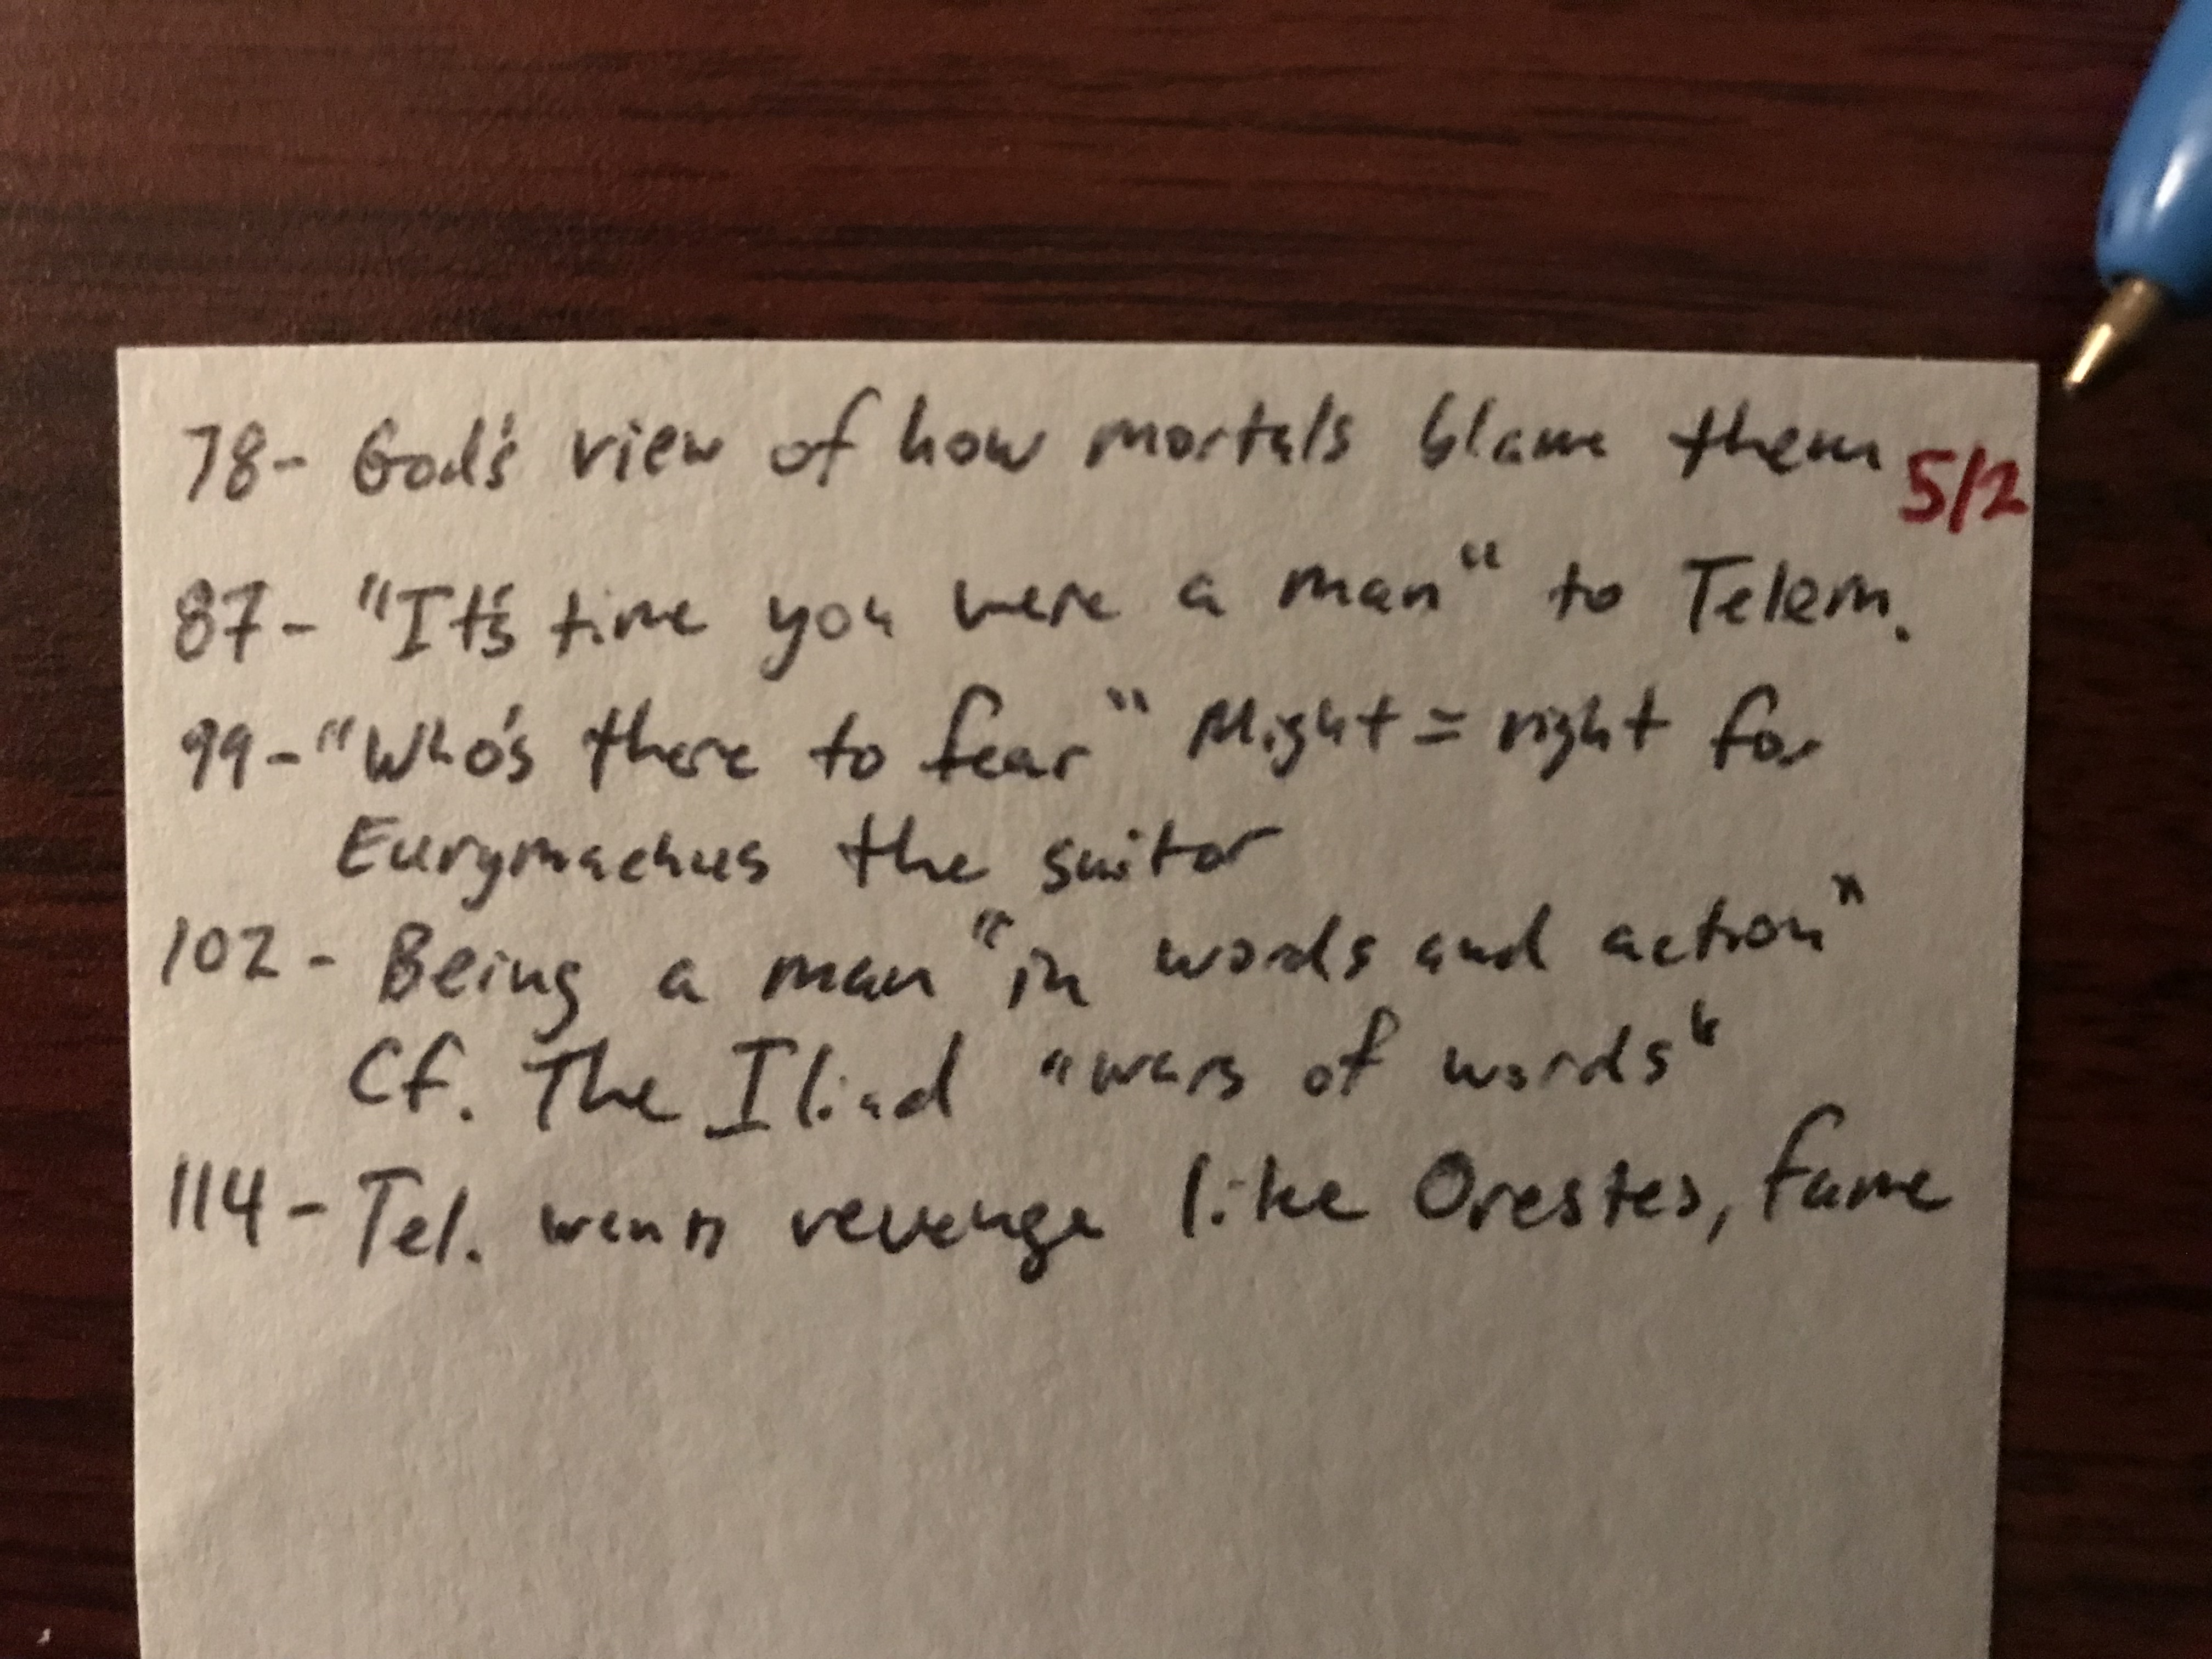 78- God's view of how mortals blame them 5/2
87- "It's time you were a man" to Telem.
99- "Who's there to fear" Might = right for
Eurymachus the suitor
102- Being a man "in words and action"
Cf. The Iliad "wars of words"
114- Tel. wants revenge like Orestes, fame